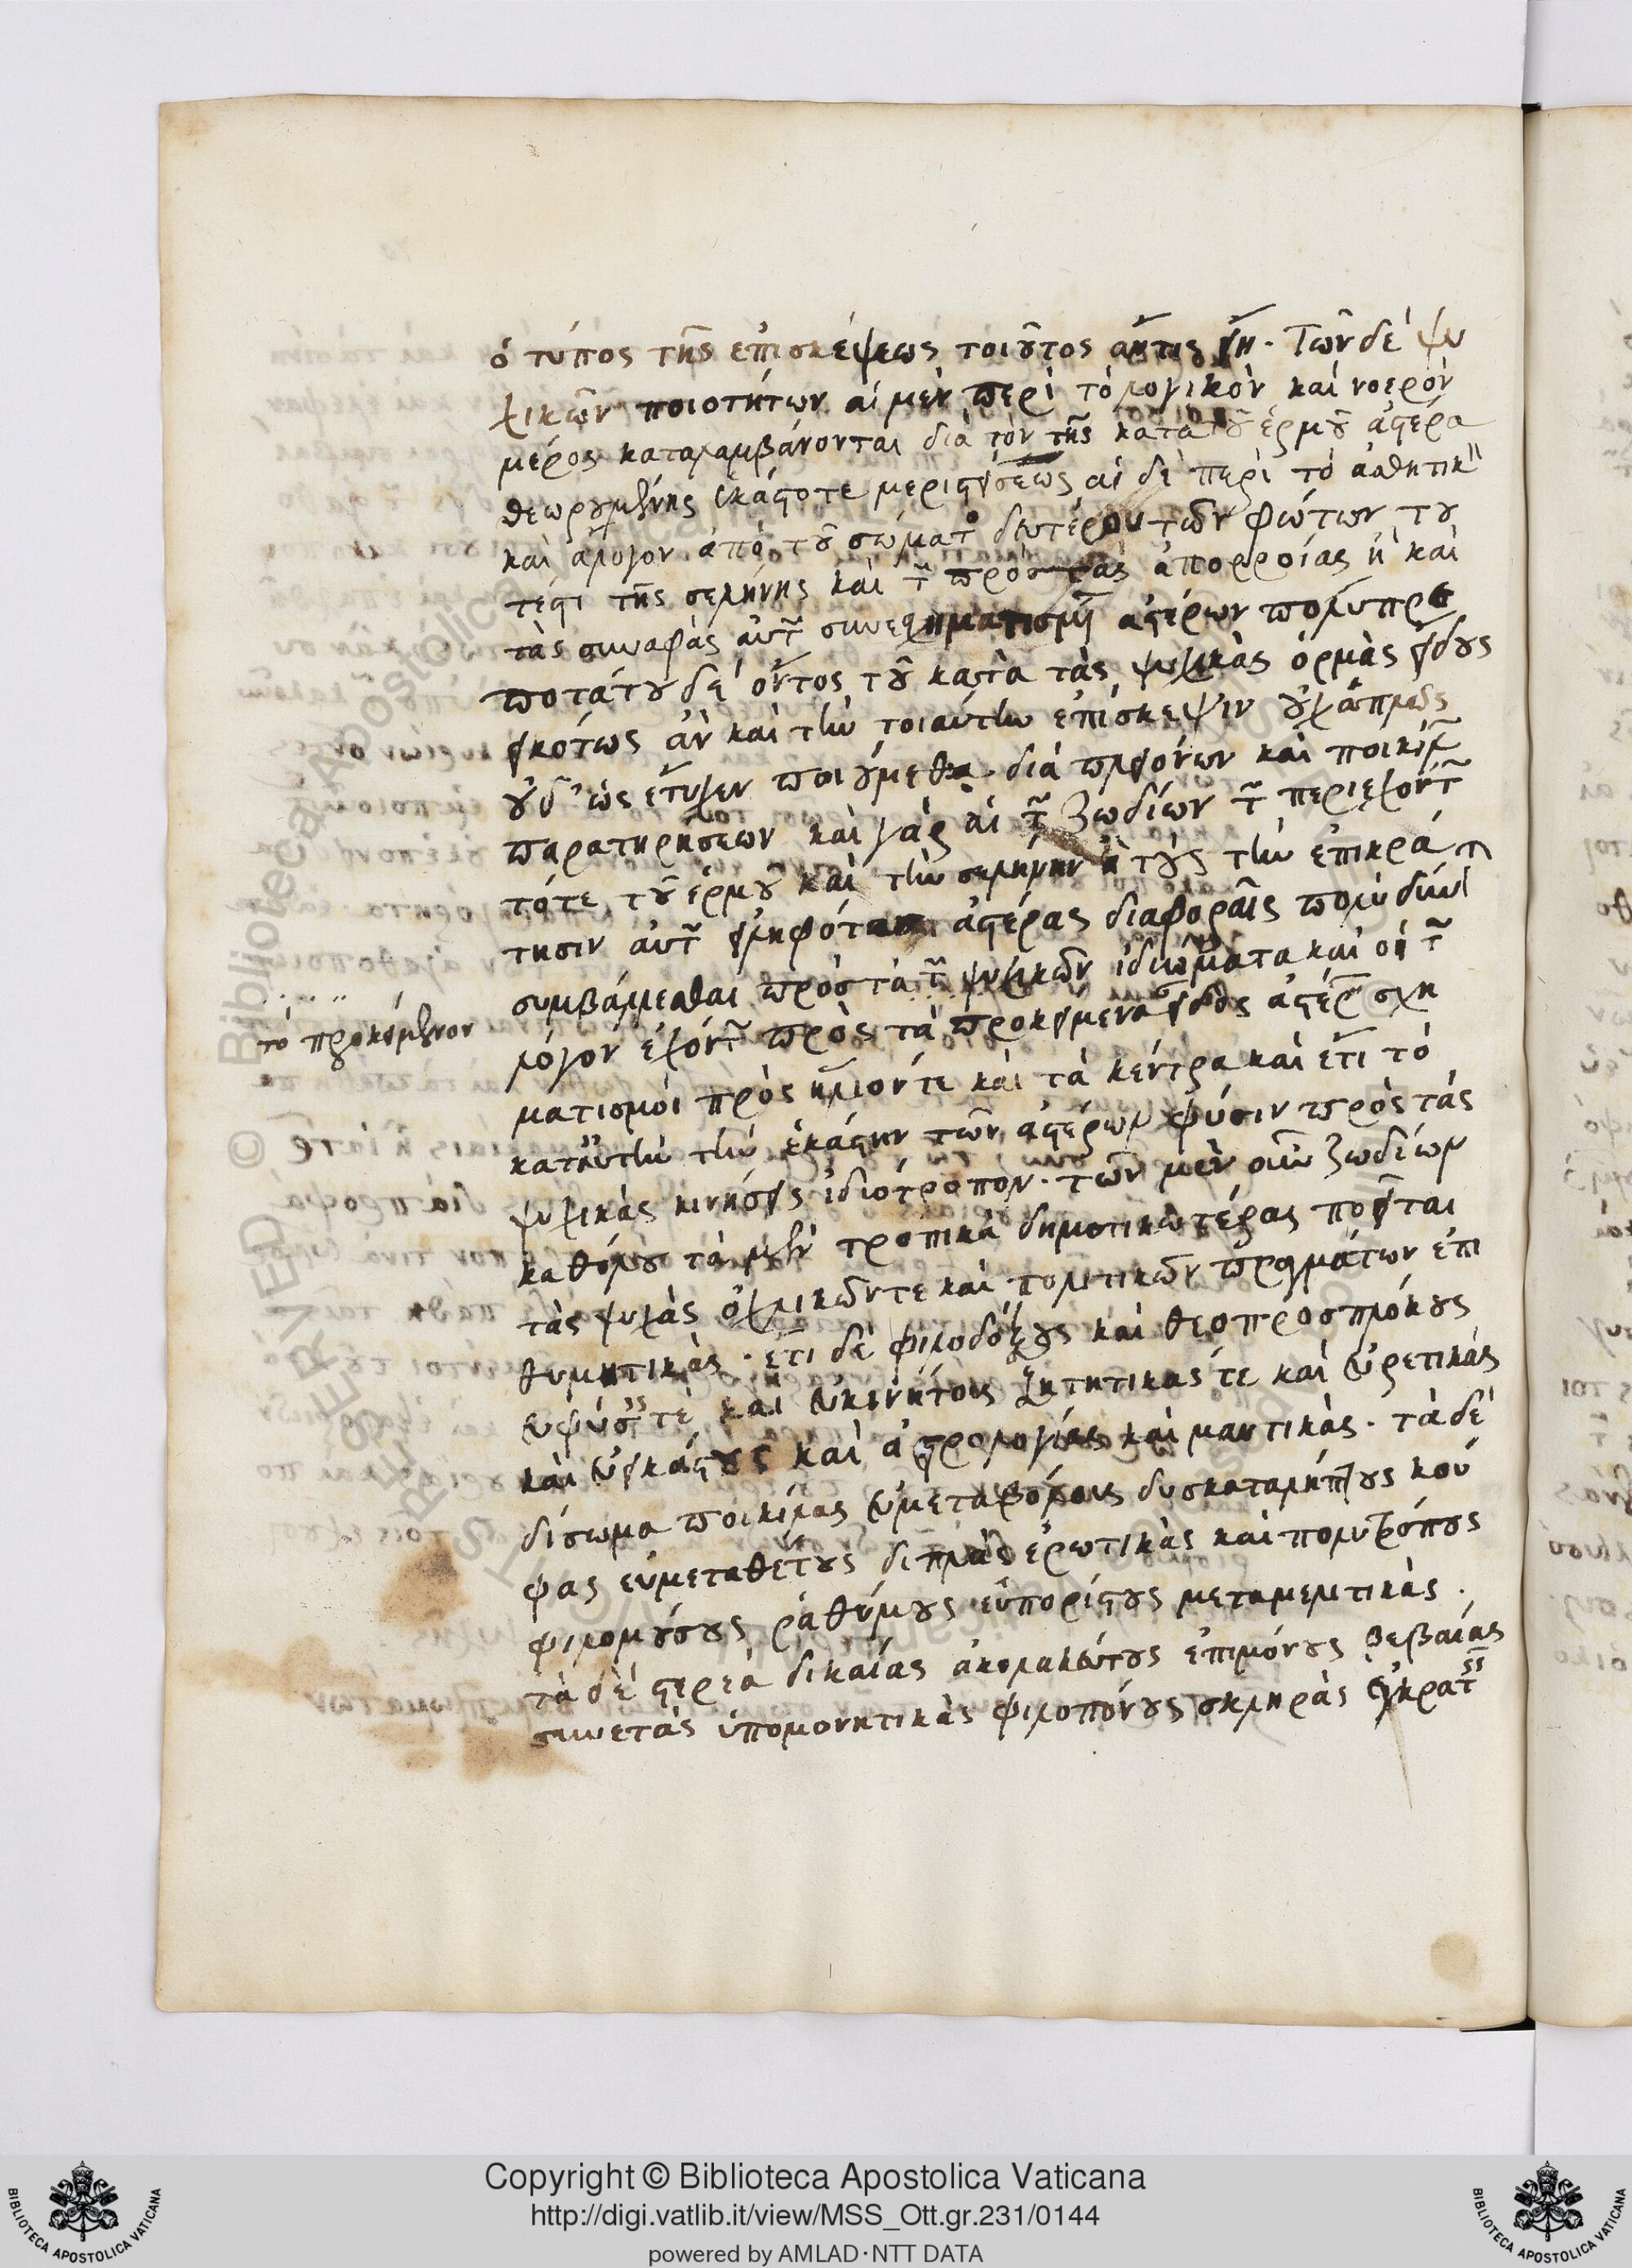 ὁ τύπος τῆς ἐπισκέψεως τοιοῦτος ἄν τις εἴη. Τῶν δὲ ψυ
χικῶν ποιοτήτων αἱ μὲν περὶ τὸ λογικὸν καὶ νοερὸν
μέρος καταλαμβάνονται διὰ τὸν τῆς κατὰ τοῦ ἑρμοῦ ἀστέρα
θεωρουμένης ἑκάστοτε περιστάσεως αἱ δὲ περὶ τὸ αἰσθητικὸν
καὶ ἄλογον ἀπὸ τοῦ σωματ δευτέρου τῶν φώτων του
τέστι τῆς σελήνης καὶ τῶν πρὸς τὰς ἀπορροίας ἢ καὶ
τὰς συναφὰς αὐτῆς συνεσχηματισμένων ἀστέρων πολυτρο
ποτάτου δὲ ὄντος τοῦ κατὰ τὰς ψυχικὰς ὁρμὰς εἴδους
εἰκότως ἂν καὶ τὴν τοιαύτην ἐπίσκεψιν οὐχ ἁπλῶς
οὐδ' ὡς ἔτυχεν ποιούμεθα. διὰ πλειόνων καὶ ποικίλων
παρατηρήσεων καὶ γὰρ αἱ τῶν ζωδίων τῶν περιεχόντων
τότε τοῦ ἑρμοῦ καὶ τὴν σελήνην ἢ τοὺς τὴν ἐπικρά
τησιν αὐτῶν εἰληφότας ἀστέρας διαφοραῖς πολὺ δύναν
συμβάλλεσθαι πρὸς τὰ τῶν ψυχικῶν ἰδιώματα καὶ οἱ τῶν
λόγον ἐχόντων πρὸς τὰ προκείμενα εἶδος ἀστέρων σχη
ματισμοὶ πρὸς ἥλιόν τε καὶ τὰ κέντρα καὶ ἔτι τὸ
κατ' αὐτὴν τὴν ἑκάστην τῶν ἀστέρων φύσιν πρὸς τὰς
ψυχικὰς κινήσεις ἰδιότροπον. τῶν μὲν οὖν ζωδίων
καθόλου τὰ μὲν τροπικὰ δημοτικωτέρας ποιεῖται
τὰς ψυχὰς ὀχλικῶν τε καὶ πολιτικῶν πραγμάτων ἐπι
θυμητικὰς. ἔτι δὲ φιλοδόξους καὶ θεοπροσπλόκους
εὐφύεις τὲ καὶ εὐκινήτους ζητητικάς τε καὶ εὑρετικὰς
καὶ εὐεικάστους καὶ ἀστρολογίας καὶ μαντικὰς. τὰ δὲ
δίσωμα ποικίλας εὐμεταβόλους δυσκαταλήπτους κού
φας εὐμεταθέτους διπλὰς ἐρωτικὰς καὶ πολυτρόπους
φιλομούσους ῥαθύμους εὐπορίστους μεταμελητικὰς.
τὰ δὲ στερεὰ δικαίας ἀκολακεύτους ἐπιμόνους βεβαίας
συνετὰς ὑπομονητικὰς φιλοπόνους σκληρὰς ἐγκρατεῖς
τὸ προκείμενον
Copyright © Biblioteca Apostolica Vaticana
http://digi.vatlib.it/view/MSS_Ott.gr.231/0144
powered by AMLAD·NTT DATA
BIBLIOTECA APOSTOLICA VATICANA
BIBLIOTECA APOSTOLICA VATICANA